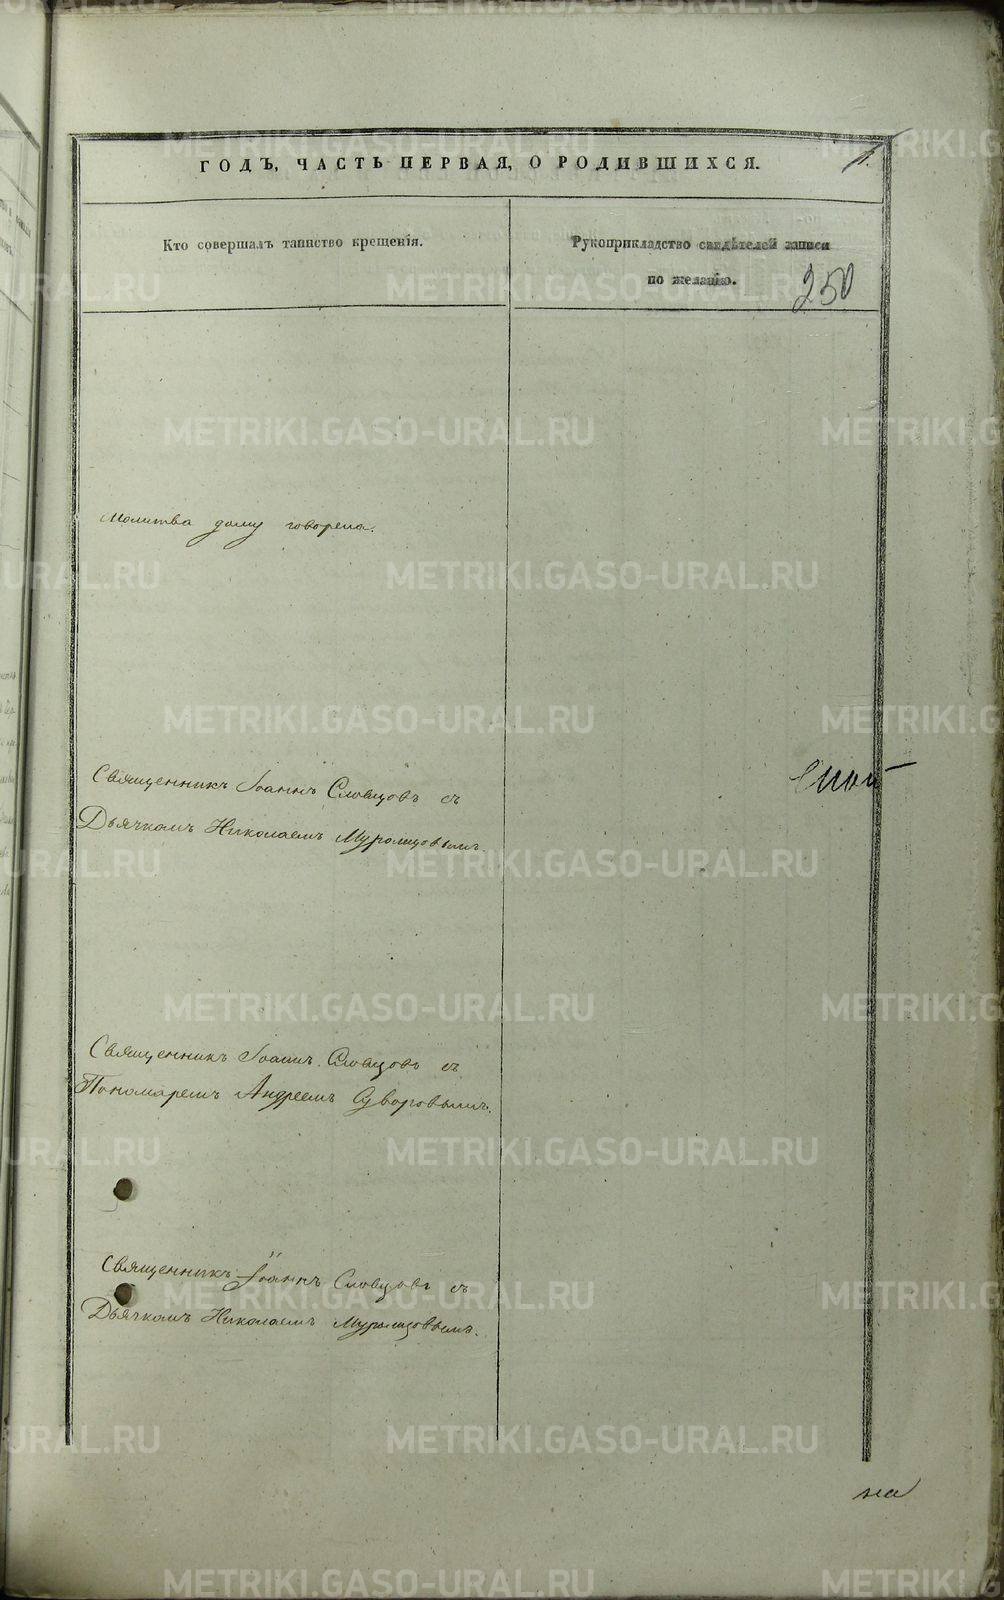 ГОДЪ, ЧАСТЬ ПЕРВАЯ, О РОДИВШИХСЯ.
1.
Кто совершалъ таинство крещенія.
Рукоприкладство свидѣтелей записи
по желанію.
250
Молитва дому говорена.
Священникъ Іоаннъ Словцовъ съ
Дьячкомъ Николаемъ Муромцовымъ
Священникъ Іоаннъ Словцовъ съ
Пономаремъ Андреемъ Суворовымъ.
Священникъ Іоаннъ Словцовъ съ
Дьячкомъ Николаемъ Муромцовымъ.
на
METRIKI.GASO-URAL.RU